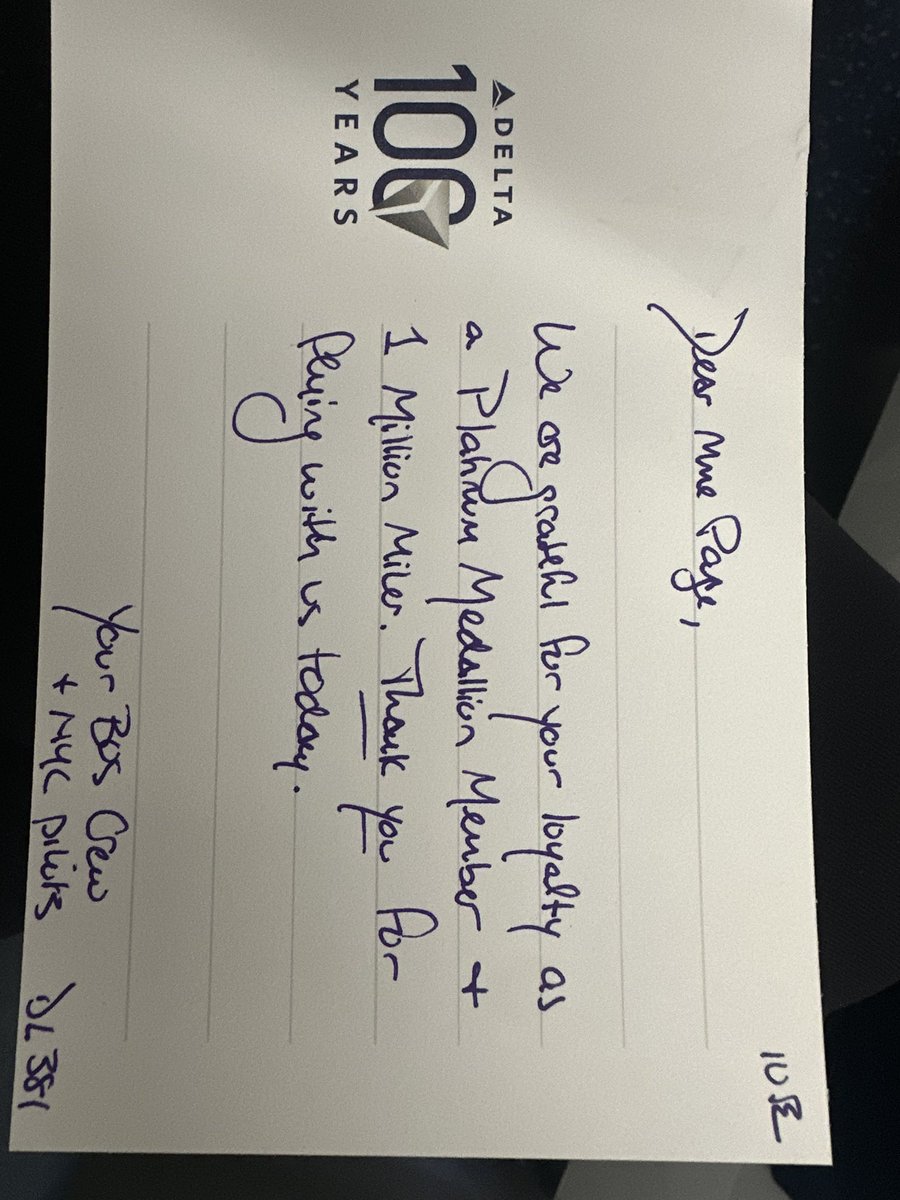 DELTA
100
YEARS
10E
Dear Mme Page,
We are grateful for your loyalty as
a Platinum Medallion Member +
1 Million Miler. Thank you for
flying with us today.
Your BOS Crew
+ NYC pilots DL 381